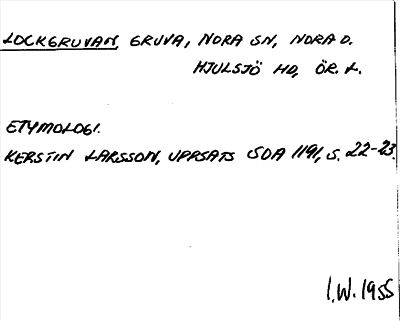 LOCKGRUVAN, GRUVA, NORA SN, NORA D.
HJULSJÖ HD, ÖR. L.
ETYMOLOGI.
KERSTIN LARSSON, UPPSATS SOA 1191, S. 22-23.
I.W. 1955